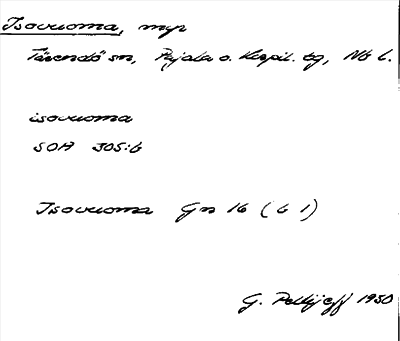 Isovuoma, myr
Tärendö sn, Pajala o. Korpil. tg, Nb l.
isovuoma
SOA 305:6
Isovuoma Gn 16 (b 1)
G. Pellijeff 1950